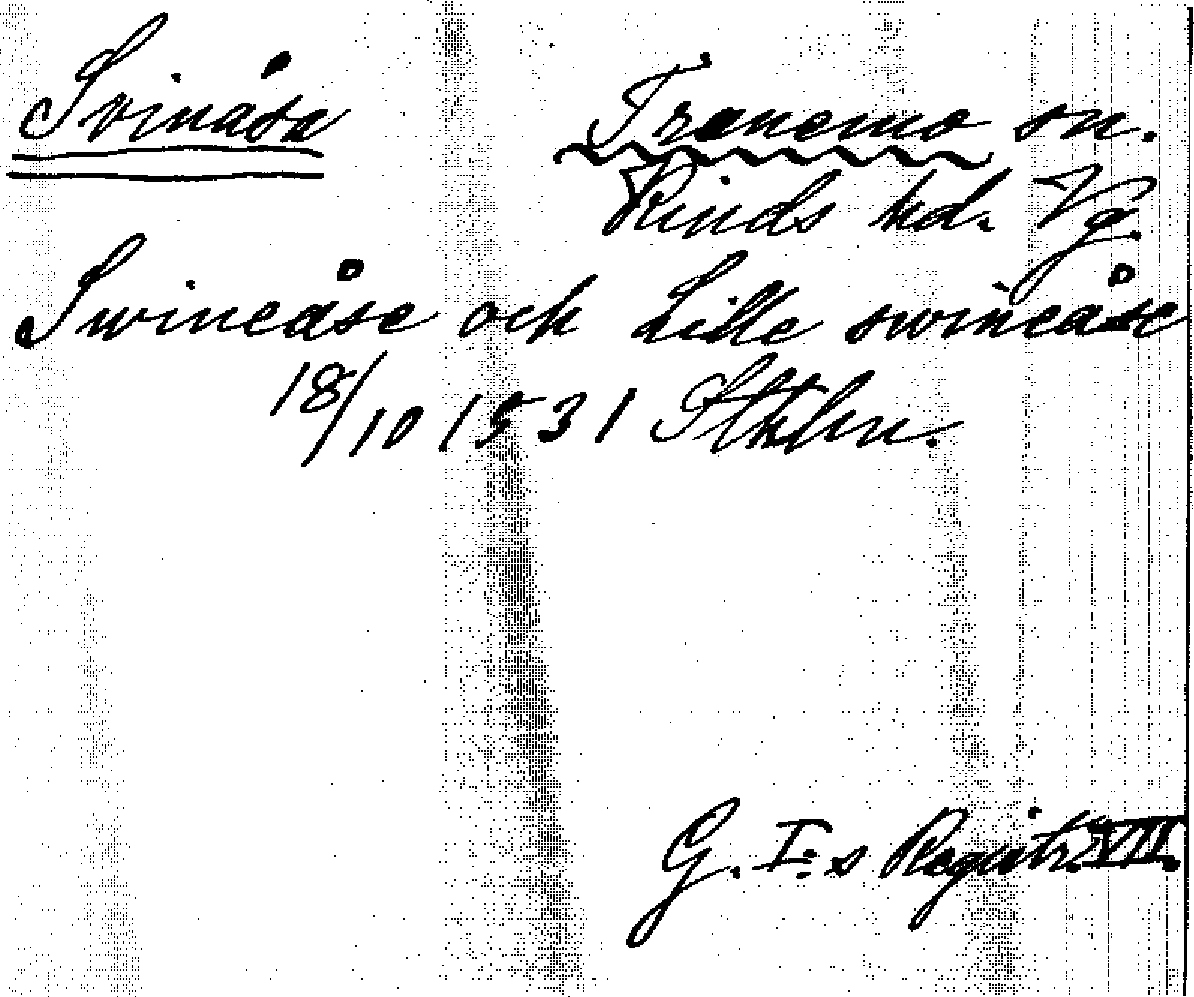 Svinåsa
Tranemo sn.
Kinds hd. Vg.
Swineåse och Lille swineåse
18/10 1531 Sthlm.
G. I:s Registr. VII.